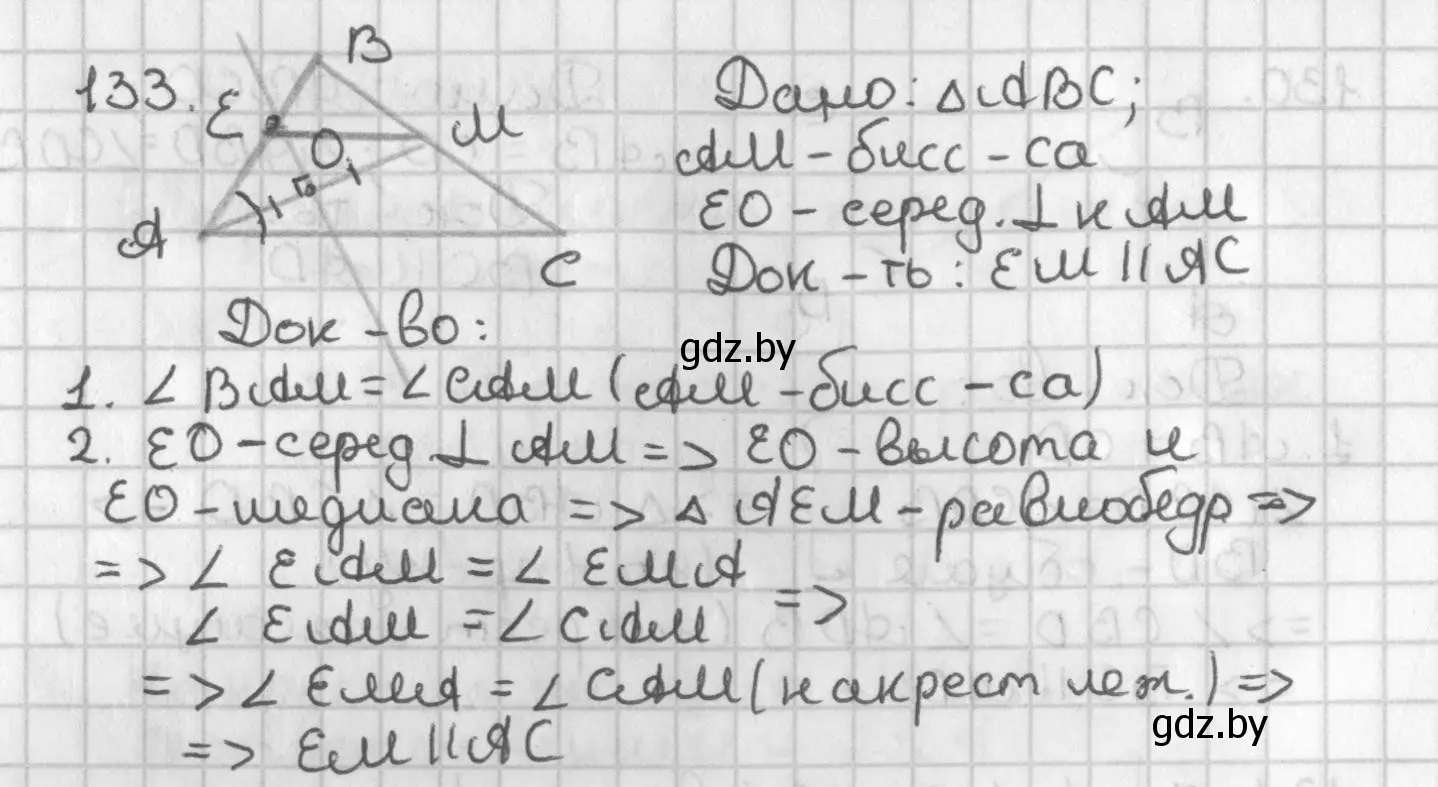 133.
B
E
M
O
A
C
Дано: △ABC;
AM - бисс - са
EO - серед. ⊥ к AM
Док - ть: EM || AC
Док - во:
gdz.by
1. ∠BAM = ∠CAM (AM - бисс - са)
2. EO - серед ⊥ AM => EO - высота и
EO - медиана => △ AEM - равнобедр =>
=> ∠ EAM = ∠ EMA
∠ EAM = ∠ CAM =>
=> ∠ EMA = ∠ CAM (накрест леж.) =>
=> EM || AC
gdz.by